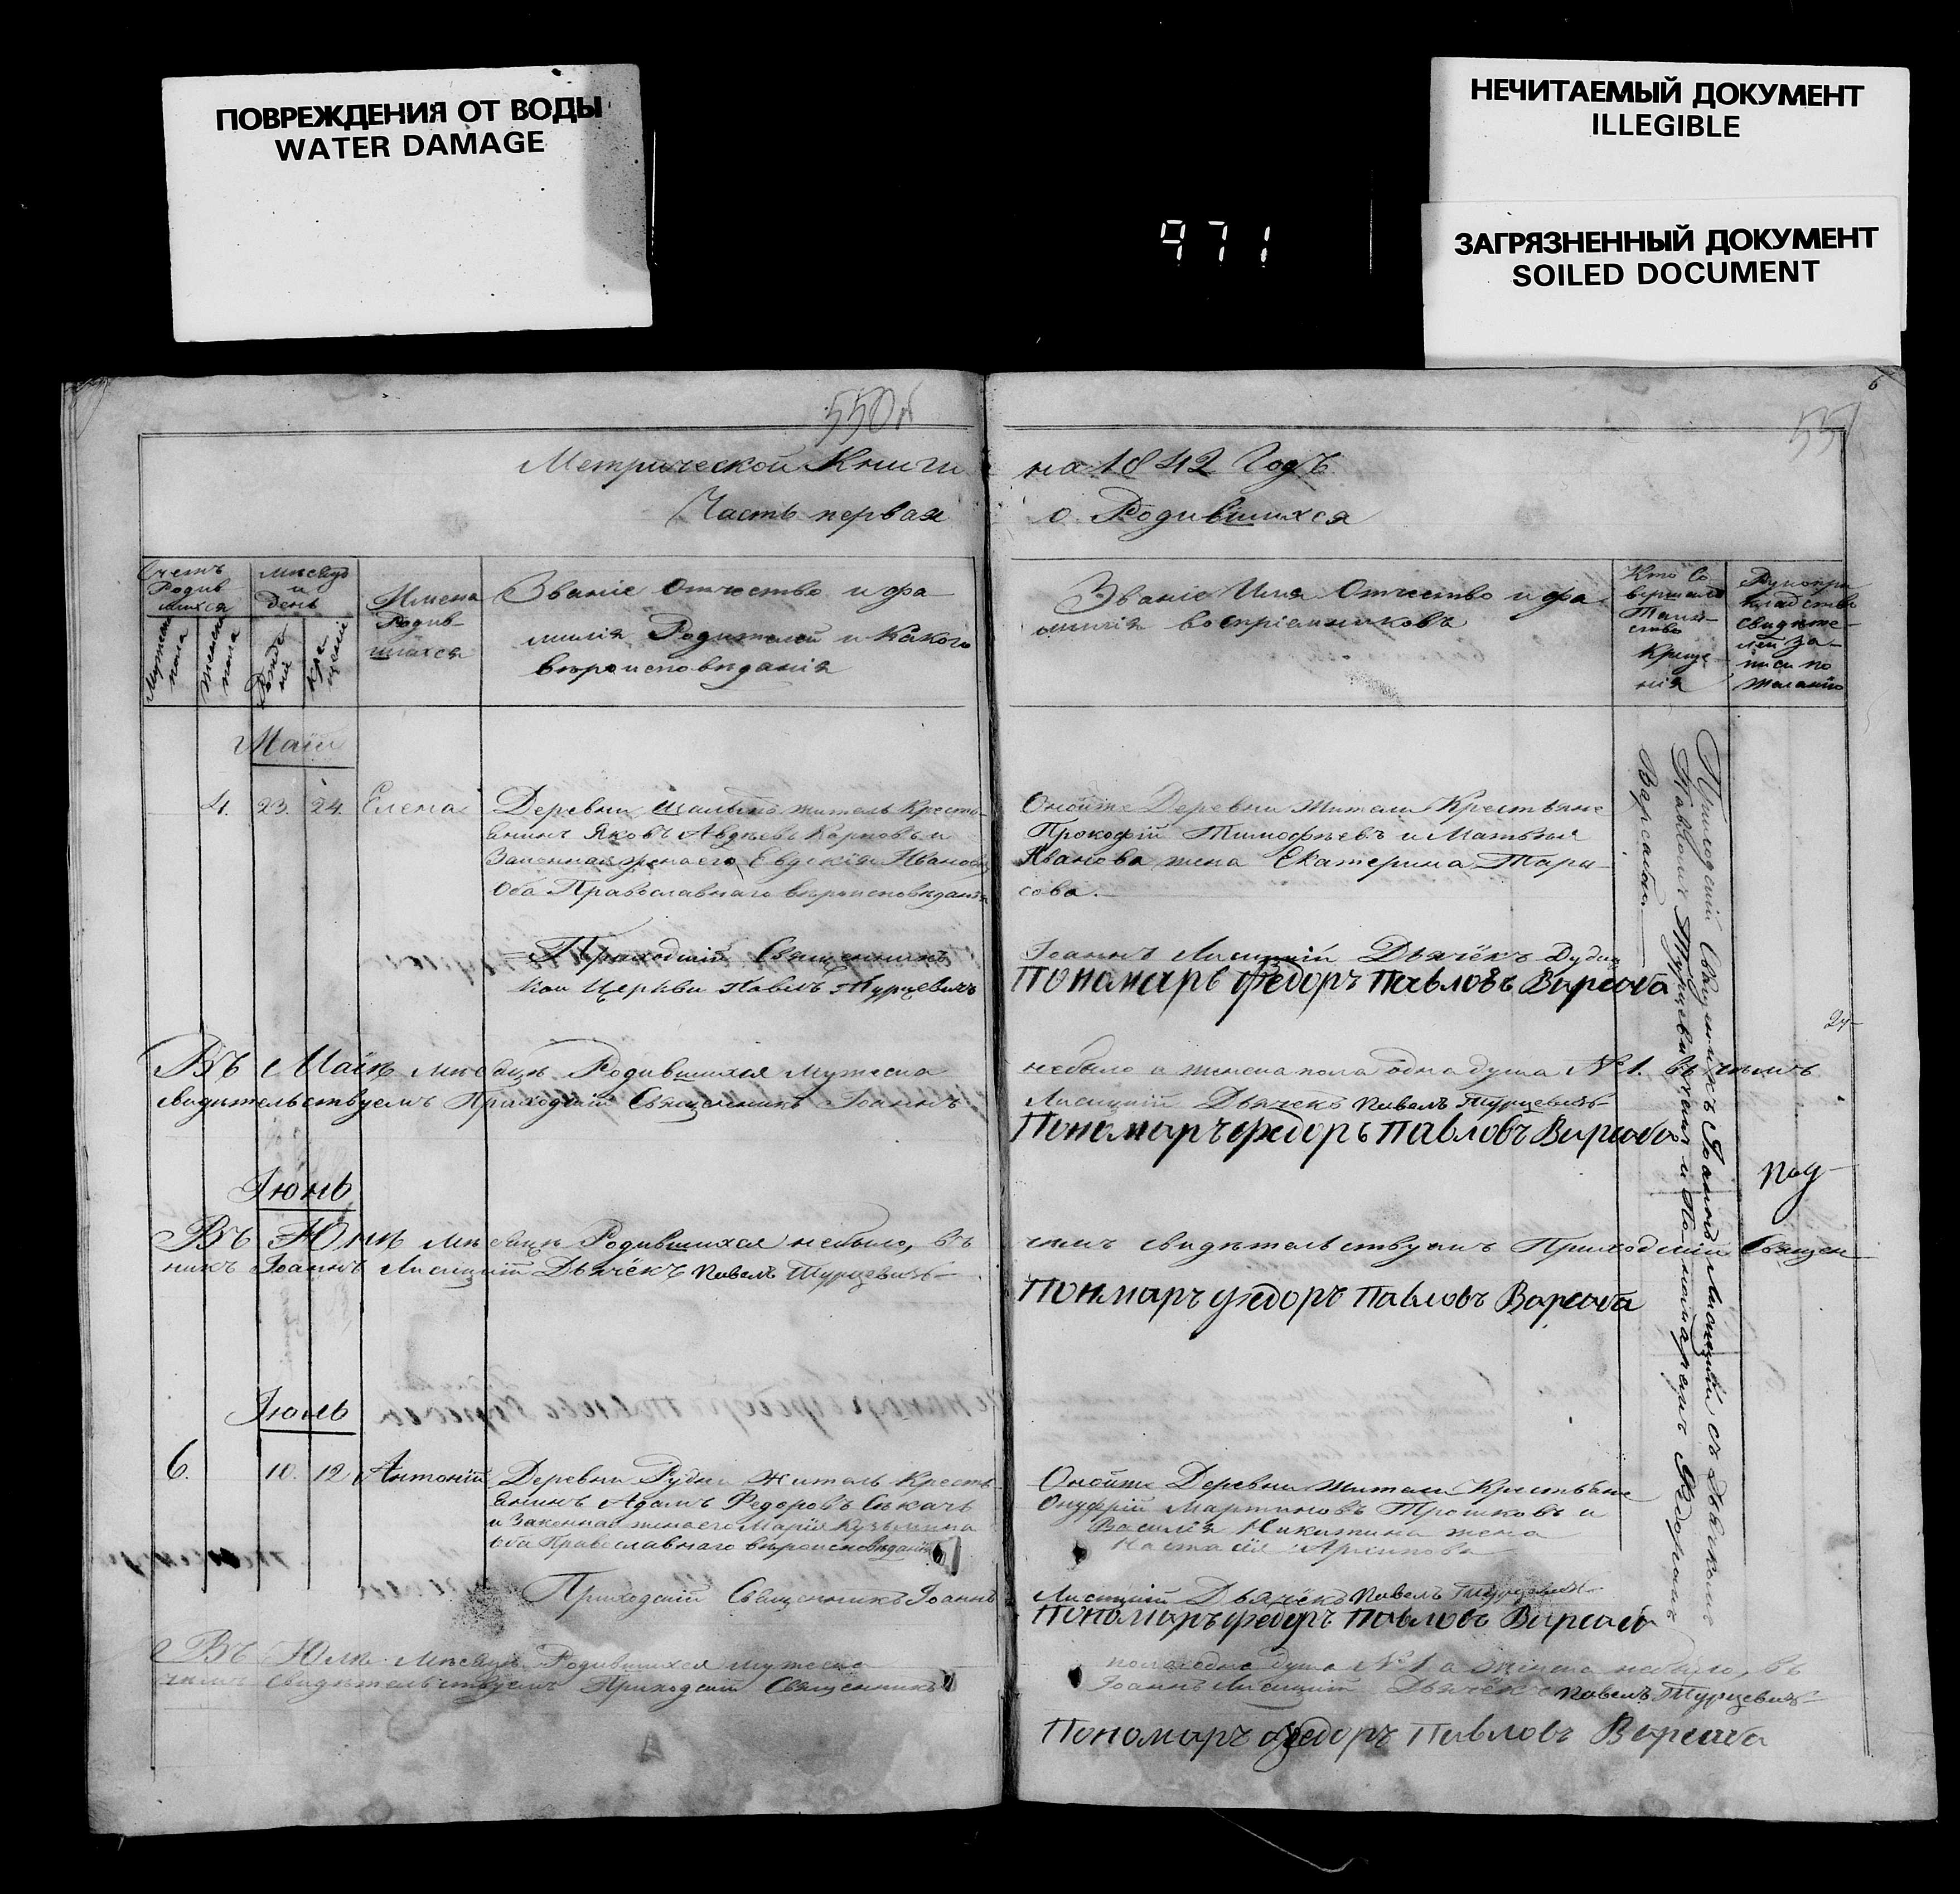 ПОВРЕЖДЕНИЯ ОТ ВОДЫ
WATER DAMAGE
НЕЧИТАЕМЫЙ ДОКУМЕНТ
ILLEGIBLE
ЗАГРЯЗНЕННЫЙ ДОКУМЕНТ
SOILED DOCUMENT
971
6
550об
551
Метрической Книги на 1842 Годъ
Часть первая о Родившихся
Счетъ Родившихся
Мужеска пола
Женска пола
Мѣсяцъ и день
Рождения
Крещения
Имена Родившихся
Званіе Отчество и фа-
милія Родителей и Какого
вѣроисповѣданія
Званіе Имя Отчество и фа-
милія воспріемниковъ
Кто Совершалъ Таинство Крещенія
Рукоприкладство свидѣтелей записи по желанію
Маій
4. 23. 24. Елена
Деревни житель Кресть-
янинъ Яковъ Авдѣевъ Карповъ и
Законная жена его Евдокія Иванова
Оба Православнаго вѣроисповѣданія
Онойже Деревни Жители Крестьяне
Прокофій Тимофѣевъ и Матвея
Иванова жена Екатерина Тара-
сова.
Приходскій Священникъ Іоаннъ Лисицкій Дьячёкъ
кои Церкви Павелъ Турцевичъ
Пономарь Федоръ Павловъ Варсоба
Въ Маіѣ мѣсяцѣ Родившихся мужеска небыло а женска пола одна душа №1. въ чемъ
свидѣтельствуемъ Приходскій Священникъ Іоаннъ Лисицкій Дьячёкъ Павелъ Турцевичъ
Пономаръ Федоръ Павловъ Варсоба
Іюнь
Въ Юнѣ мѣсяцѣ Родившихся небыло, въ чемъ свидѣтельствуемъ Приходскій Священ-
никъ Іоаннъ Лисицкій Дьячёкъ Павелъ Турцевичъ
Понмаръ Федоръ Павловъ Варсоба
Под-
Іюль
6. 10. 12. Антоній
Деревни Рудни Житель Кресть-
янинъ Адамъ Федоровъ Сѣкачъ
и Законная жена его Марія Кузьмина
оба Православнаго вѣроисповѣданія
Онойже Деревни Жители Крестьяне
Онуфрій Мартиновъ Трошковъ и
Василія Никитина жена
Настасія Архипова
Приходскій Священникъ Іоаннъ Лисицкій Дьячёкъ Павелъ Турцевичъ
Пономаръ Федоръ Павловъ Варсоба
Въ Юлѣ Мѣсяцѣ Родившихся мужеска пола одна душа №1 а женска небыло, въ
чемъ Свидѣтельствуемъ Приходскій Священникъ Іоаннъ Лисицкій Дьячёкъ Павелъ Турцевичъ
Пономаръ Федоръ Павловъ Варсоба
Приходскій Священникъ Іоаннъ Лисицкій съ Дьячкомъ
Павломъ Турцевичемъ и Пономаремъ Федоромъ
Варсобою